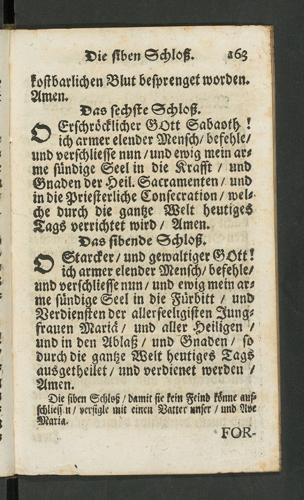 Die siben Schloß. 263
kostbarlichen Blut besprenget worden.
Amen.
Das sechste Schloß.
O Erschröcklicher GOtt Sabaoth!
ich armer elender Mensch/ befehle/
und verschliesse nun/ und ewig mein ar-
me sündige Seel in die Krafft/ und
Gnaden der Heil. Sacramenten/ und
in die Priesterliche Consecration/ wel-
che durch die gantze Welt heutiges
Tags verrichtet wird/ Amen.
Das sibende Schloß.
O Starcker/ und gewaltiger GOtt!
ich armer elender Mensch/ befehle/
und verschliesse nun/ und ewig mein ar-
me sündige Seel in die Fürbitt/ und
Verdiensten der allerseeligisten Jung-
frauen Mariä/ und aller Heiligen/
und in den Ablaß/ und Gnaden/ so
durch die gantze Welt heutiges Tags
ausgetheilet/ und verdienet werden/
Amen.
Die siben Schloß/ damit sie kein Feind könne auf-
schliessen/ versigle mit einen Vatter unser/ und Ave
Maria.
FOR-